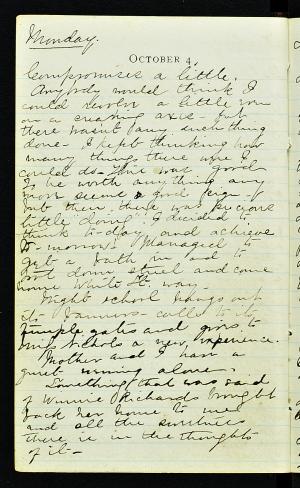 Monday.
OCTOBER 4.
Compromises a little.
Anybody would think I
could revolve a little run
on a creaking axis - but
there wasn't any such thing
done - I kept thinking how
many things there were I
could do - One was good
to be worth anything any
more seems a good sign of
but there think was precious
little doing. I decided to
think to-day and achieve
to-morrow. Managed to
get a bath in and to
down street and come
home White St. way.
Night school hangs out
its banners - calls to its
temple gates and gives to
Nichols a new experience.
Mother and I have a
quiet evening alone.
Something that was said
of Winnie Richards brought
back her home to me
and all the
there is in the thoughts
of it -